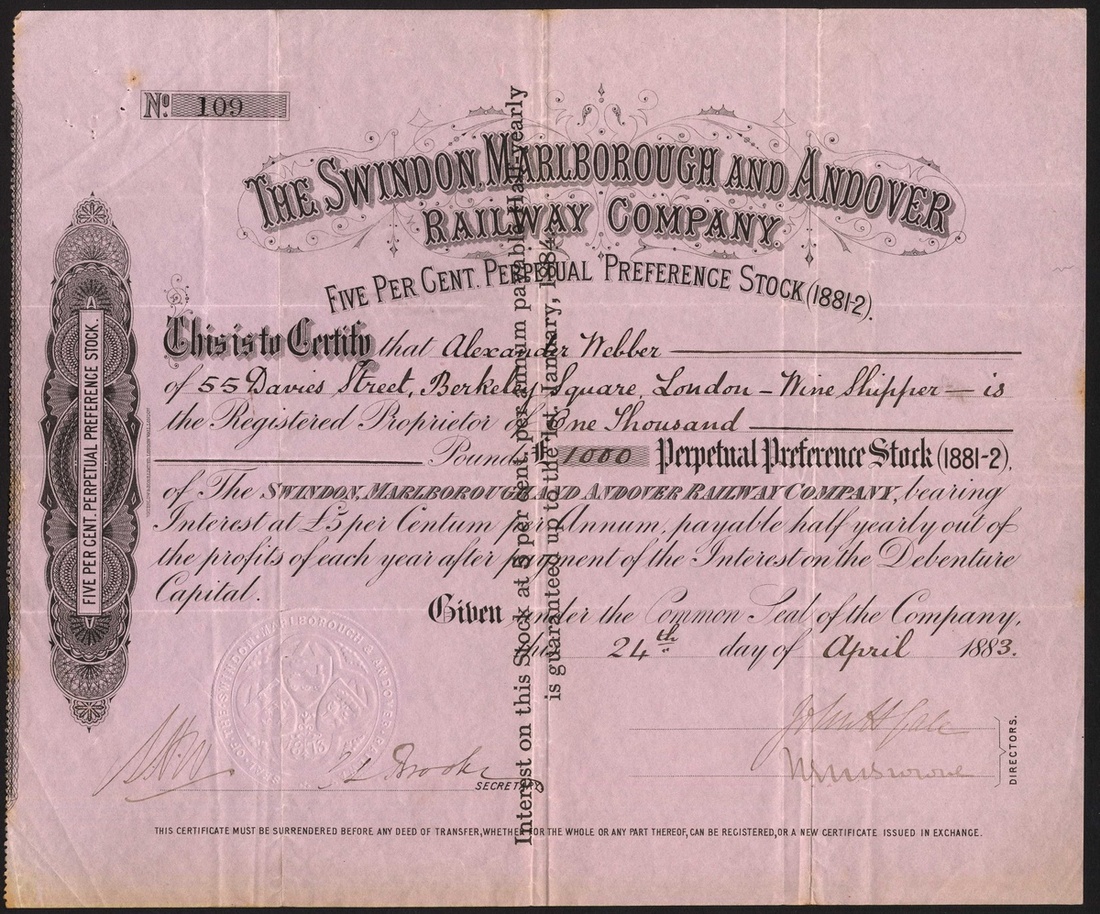 No. 109
THE SWINDON, MARLBOROUGH AND ANDOVER
RAILWAY COMPANY.
FIVE PER CENT. PERPETUAL PREFERENCE STOCK (1881-2).
This is to Certify that Alexander Webber
of 55 Davies Street, Berkeley Square, London - Wine Shipper - is
the Registered Proprietor of One Thousand
Pounds £1000 Perpetual Preference Stock (1881-2),
of The SWINDON, MARLBOROUGH AND ANDOVER RAILWAY COMPANY, bearing
Interest at £5 per Centum per Annum, payable half yearly out of
the profits of each year after payment of the Interest on the Debenture
Capital.
Given under the Common Seal of the Company,
this 24th day of April 1883.
SECRETARY
DIRECTORS.
THIS CERTIFICATE MUST BE SURRENDERED BEFORE ANY DEED OF TRANSFER, WHETHER FOR THE WHOLE OR ANY PART THEREOF, CAN BE REGISTERED, OR A NEW CERTIFICATE ISSUED IN EXCHANGE.
FIVE PER CENT. PERPETUAL PREFERENCE STOCK.
Interest on this Stock at 5 per cent. per annum payable Half-yearly
is guaranteed up to the 1st January, 1884.